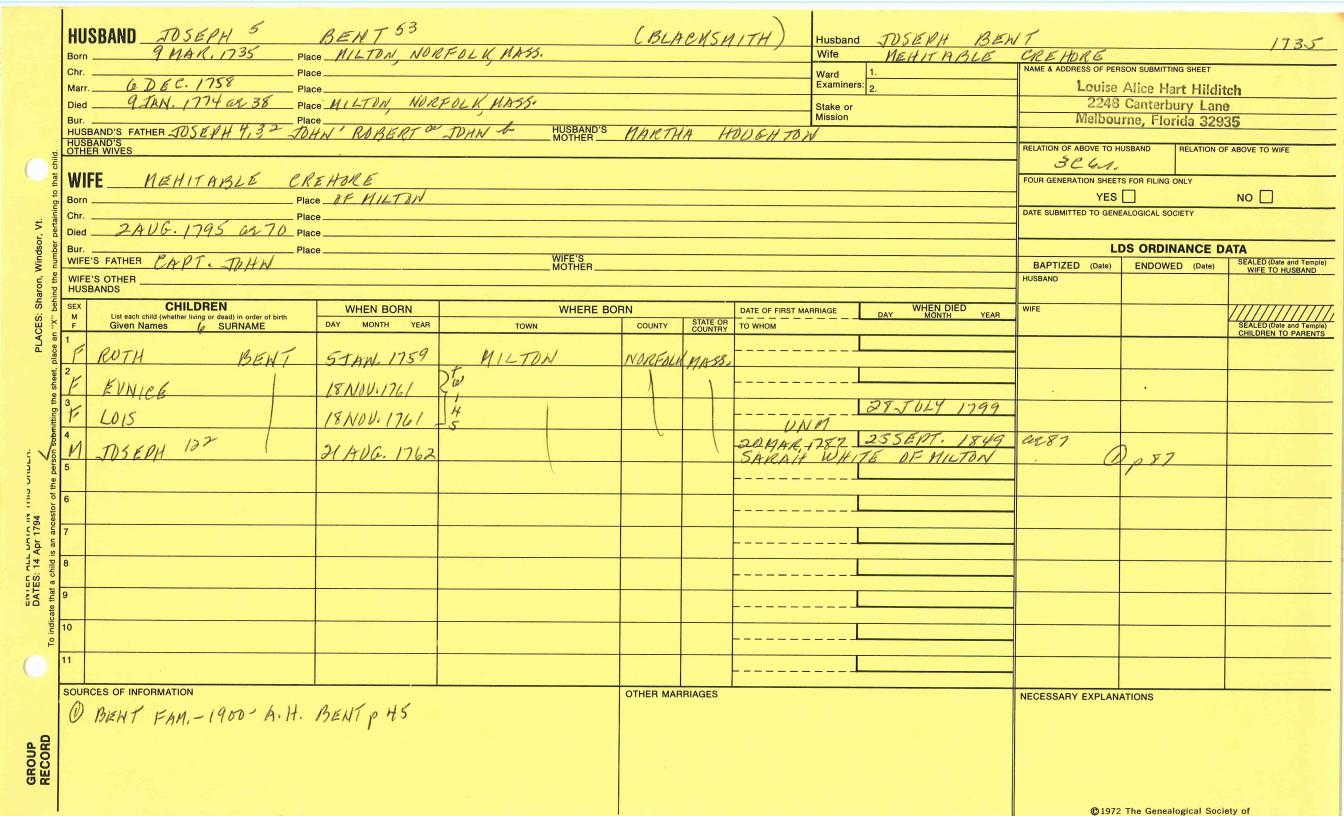 HUSBAND JOSEPH 5 BENT 53 (BLACKSMITH)
Born 9 MAR. 1735 Place MILTON, NORFOLK, MASS.
Chr. Place
Marr. 6 DEC. 1758 Place
Died 9 JAN. 1774 ae 38 Place MILTON, NORFOLK, MASS.
Bur. Place
HUSBAND'S FATHER JOSEPH 4,32 JOHN' ROBERT a JOHN b HUSBAND'S MOTHER MARTHA HOUGHTON
HUSBAND'S OTHER WIVES
Husband JOSEPH BENT 1735
Wife MEHITABLE CREHORE
Ward Examiners: 1.
2.
Stake or Mission
NAME & ADDRESS OF PERSON SUBMITTING SHEET
Louise Alice Hart Hilditch
2248 Canterbury Lane
Melbourne, Florida 32935
RELATION OF ABOVE TO HUSBAND RELATION OF ABOVE TO WIFE
FOUR GENERATION SHEETS FOR FILING ONLY
YES NO
DATE SUBMITTED TO GENEALOGICAL SOCIETY
WIFE MEHITABLE CREHORE
Born Place OF MILTON
Chr. Place
Died 2 AUG. 1795 ae 70 Place
Bur. Place
WIFE'S FATHER CAPT. JOHN WIFE'S MOTHER
WIFE'S OTHER HUSBANDS
LDS ORDINANCE DATA
BAPTIZED (Date) ENDOWED (Date) SEALED (Date and Temple) WIFE TO HUSBAND
HUSBAND
WIFE
SEALED (Date and Temple) CHILDREN TO PARENTS
SEX M F
CHILDREN
List each child (whether living or dead) in order of birth
Given Names 6 SURNAME
WHEN BORN
DAY MONTH YEAR
WHERE BORN
TOWN COUNTY STATE OR COUNTRY
DATE OF FIRST MARRIAGE
TO WHOM
WHEN DIED
DAY MONTH YEAR
1 F RUTH BENT 5 JAN. 1759 MILTON NORFOLK MASS.
2 F EUNICE 18 NOV. 1761
3 F LOIS 18 NOV. 1761 28 JULY 1799
UNM
4 M JOSEPH 122 21 AUG. 1762 20 MAR, 1787 23 SEPT. 1849 ae 87
SARAH WHITE OF MILTON ① p 87
5
6
7
8
9
10
11
SOURCES OF INFORMATION
① BENT FAM. - 1900 - A.H. BENT p 45
OTHER MARRIAGES
NECESSARY EXPLANATIONS
©1972 The Genealogical Society of
PLACES: Sharon, Windsor, Vt.
To indicate that a child is an ancestor of the person submitting the sheet, place an "X" behind the number pertaining to that child.
ENTER ALL DATA IN THIS ORDER:
DATES: 14 Apr 1794
GROUP RECORD